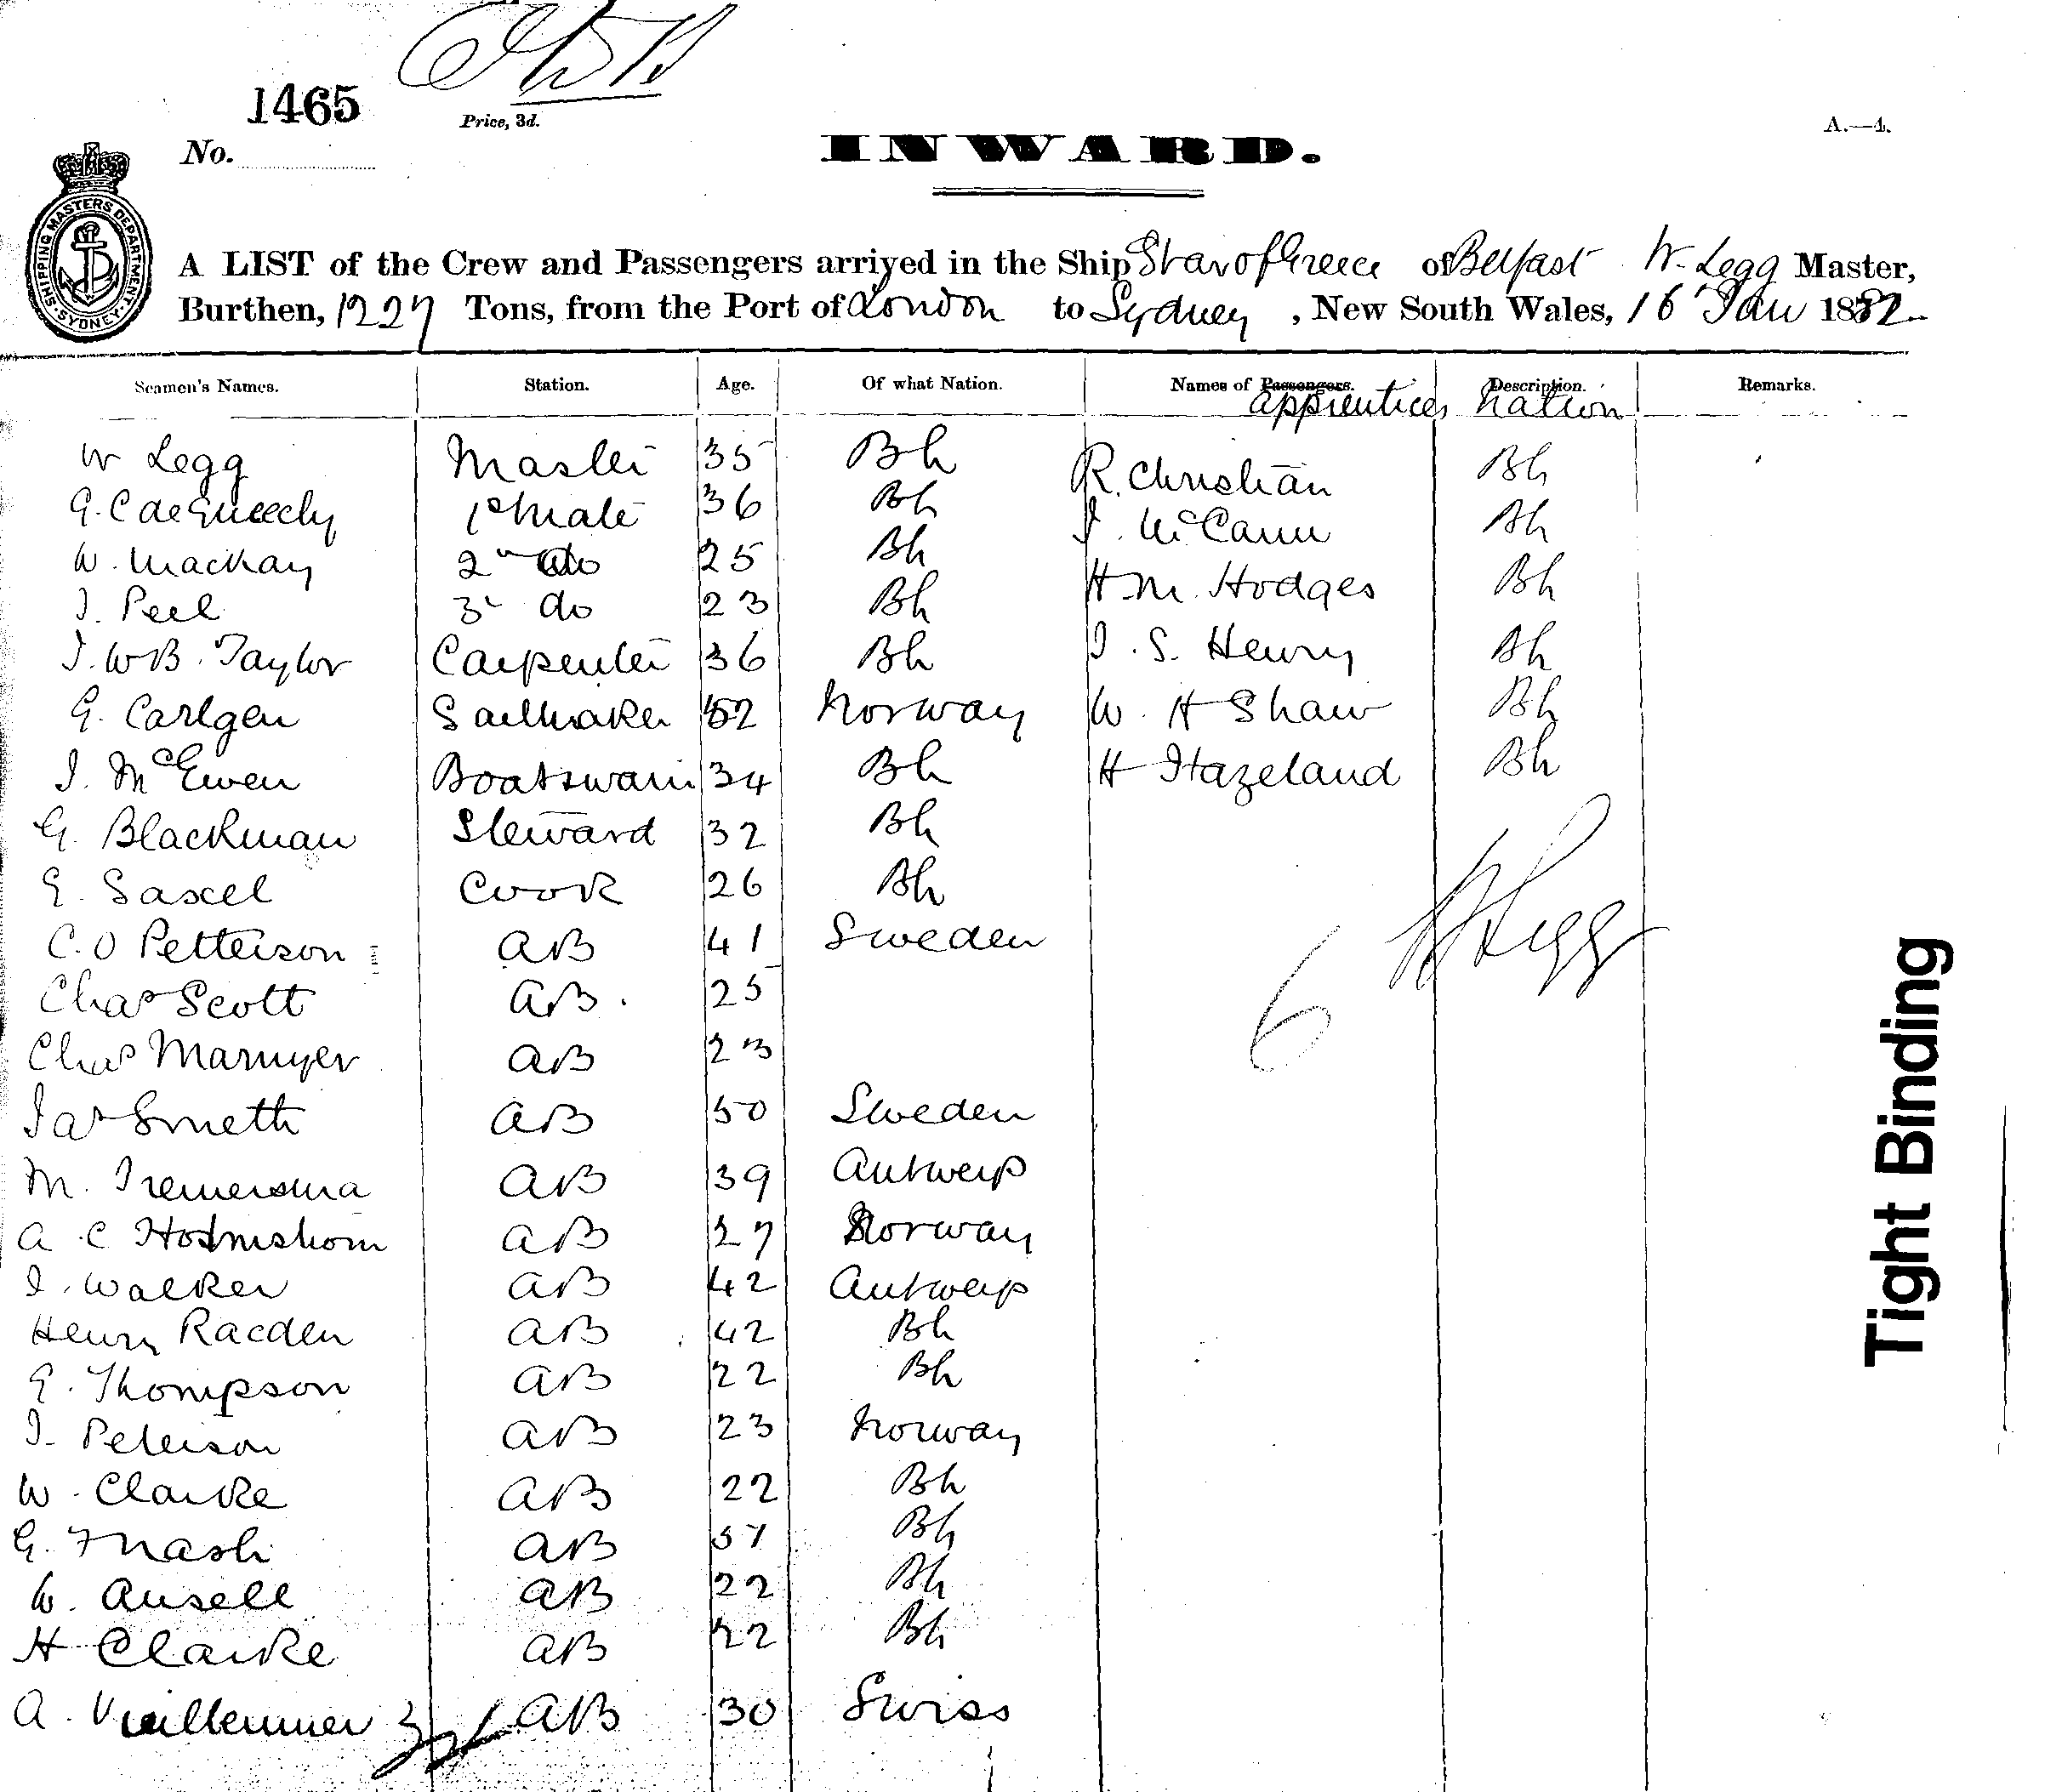 1465
Price, 3d.
No.
A.—4.
INWARD.
SHIPPING MASTERS DEPARTMENT · SYDNEY ·
A LIST of the Crew and Passengers arrived in the Ship Star of Greece of Belfast W. Legg Master,
Burthen, 1227 Tons, from the Port of London to Sydney, New South Wales, 16 Jan 1882
Seamen's Names. Station. Age. Of what Nation. Names of Passengers. Description. Remarks.
apprentices Nation
W Legg Master 35 Bh R. Christian Bh
G. C 1st Mate 36 Bh J. McCann Bh
W. Mackay 2nd do 25 Bh H M. Hodges Bh
J. Peel 3 do 23 Bh J. S. Henry Bh
J. W B. Taylor Carpenter 36 Bh W. H Shaw Bh
G. Carlgen Sailmaker 52 Norway H Hazeland Bh
J. McEwen Boatswain 34 Bh
G. Blackman Steward 32 Bh
G. Sascel Cook 26 Bh
W Legg
C. O Petterson AB 41 Sweden
6
Chas Scott AB. 25
Chas AB 23
Jas Smeth AB 50 Sweden
M. AB 39 Antwerp
A. C AB 27 Norway
J. Walker AB 42 Antwerp
Henry Racden AB 42 Bh
G. Thompson AB 22 Bh
J. Peterson AB 23 Norway
W. Clarke AB 22 Bh
G. Nash AB 37 Bh
W. Ansell AB 22 Bh
H Clarke AB 22 Bh
A. Vuillemmer AB 30 Swiss
Tight Binding